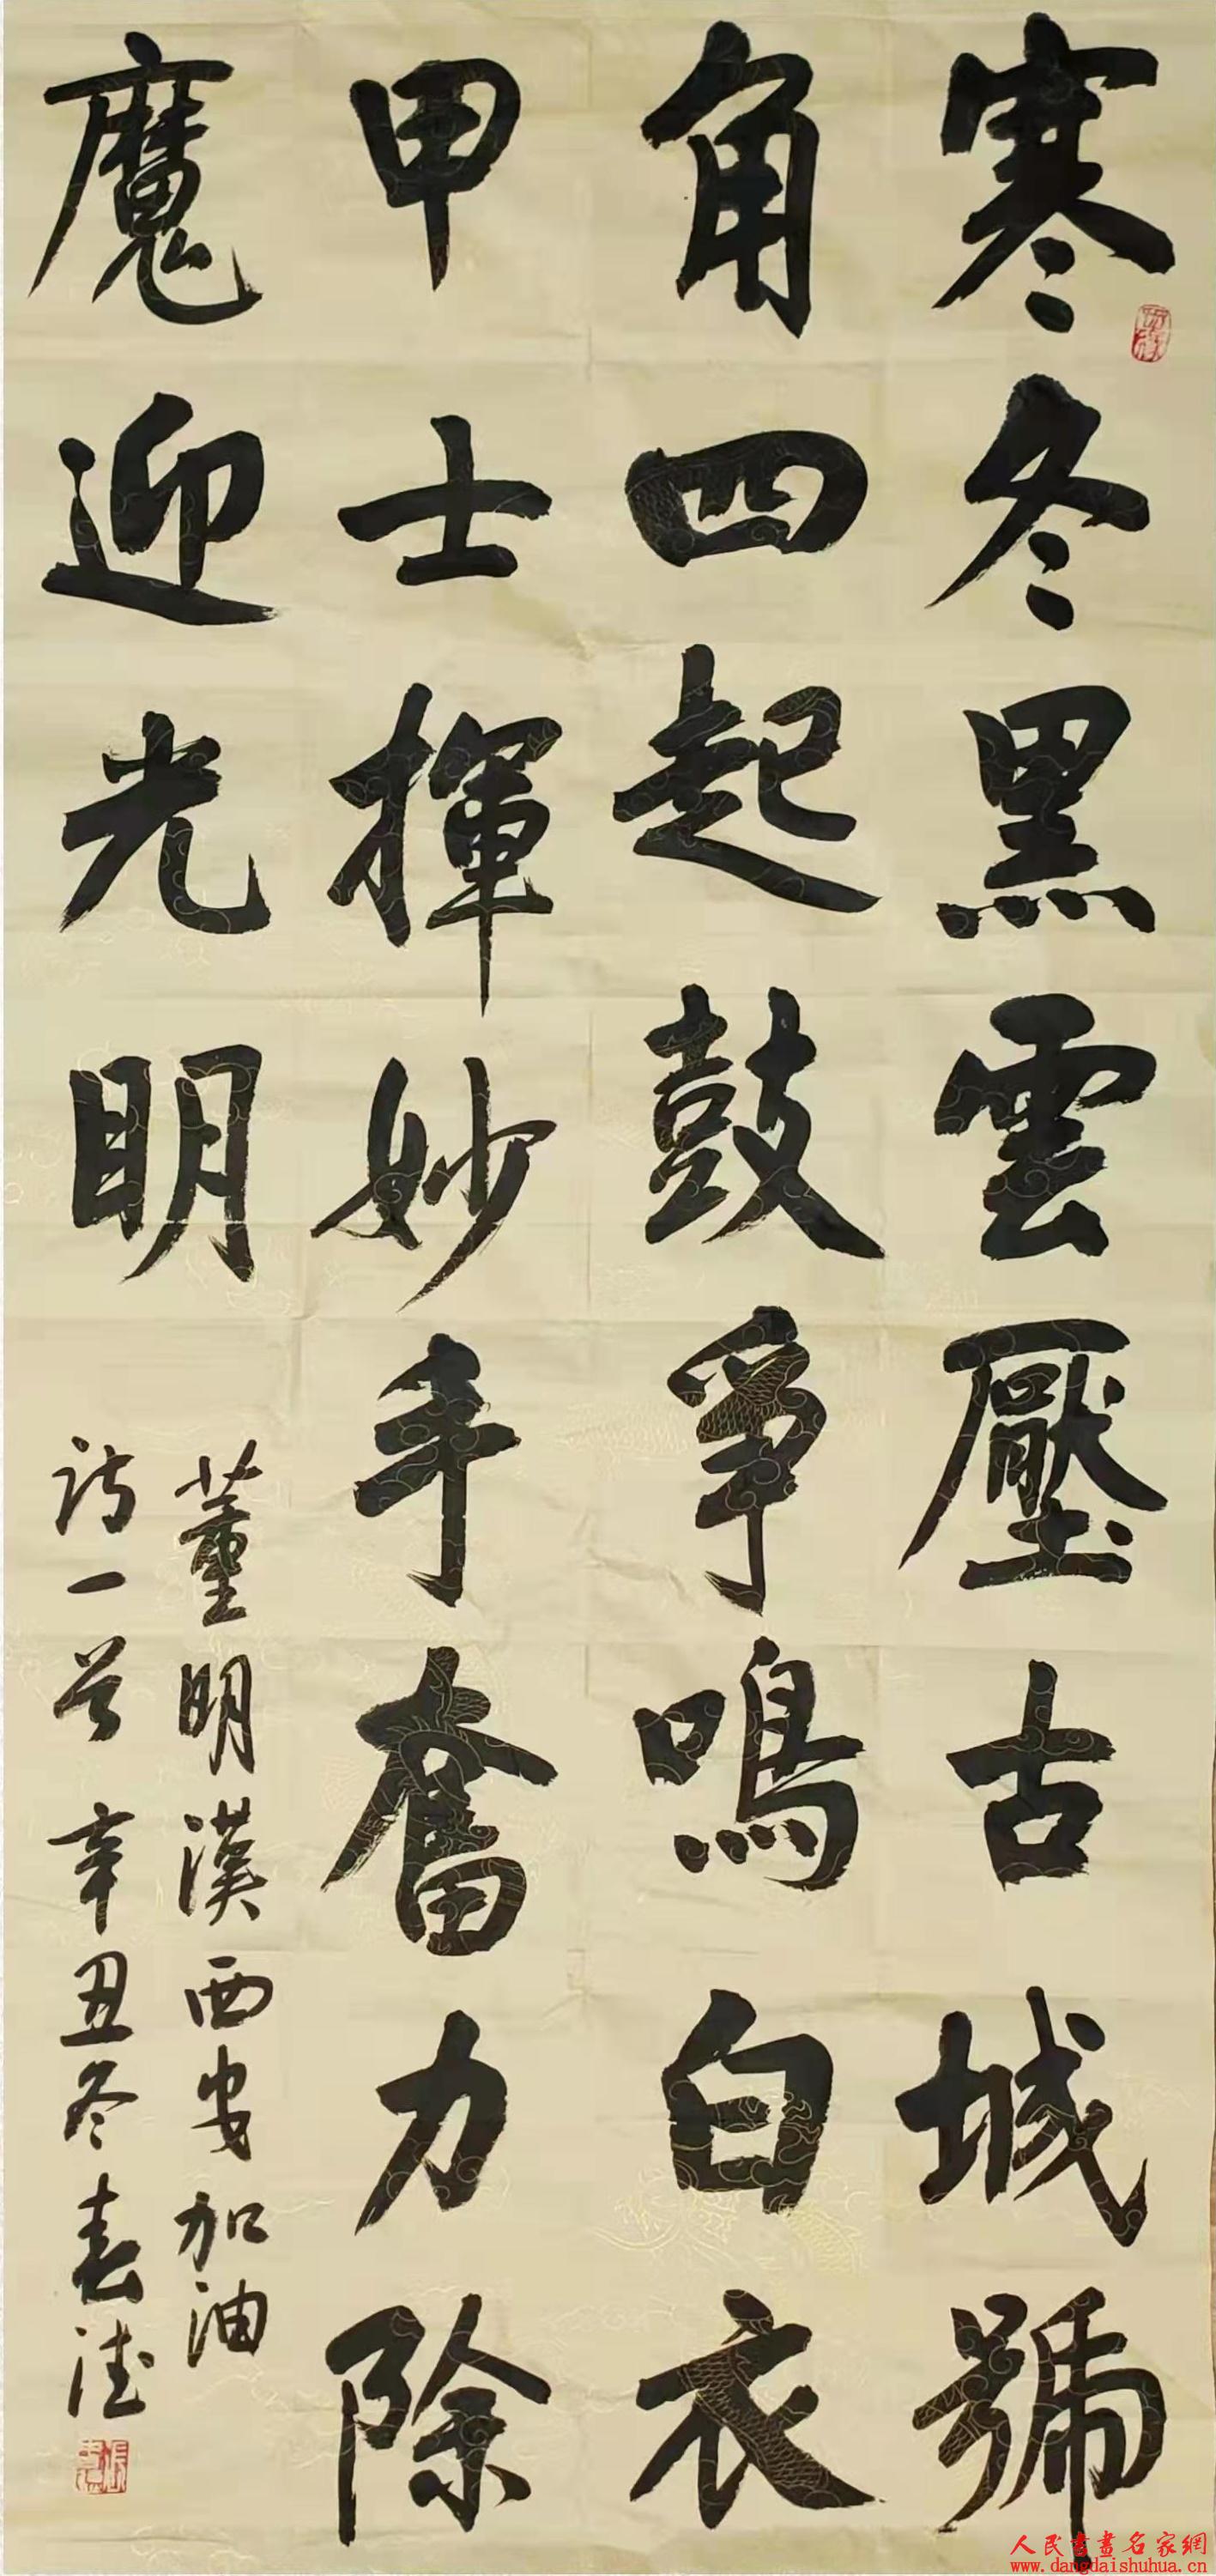 寒冬黑雲壓古城號
角四起鼓爭鳴白衣
甲士揮妙手奮力除
魔迎光明
董明漢西安加油
诗一首辛丑冬春德
人民書畫名家網
www.dangdaishuhua.cn